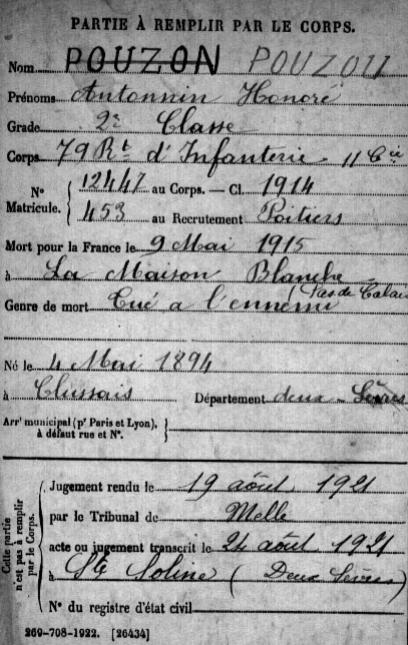 PARTIE À REMPLIR PAR LE CORPS.
Nom POUZON POUZOU
Prénoms Antonnin Honoré
Grade 2e Classe
Corps 79 Rt d'Infanterie 11 Cie
N° Matricule. { 12447 au Corps. — Cl. 1914
453 au Recrutement Poitiers
Mort pour la France le 9 Mai 1915
à La Maison Blanche
(Pas de Calais
Genre de mort Tué a l'ennemi
Né le 4 Mai 1894
à Clussais Département deux-Sèvres
Arrt municipal (pr Paris et Lyon), à défaut rue et N°. {
Cette partie n'est pas à remplir par le Corps.
Jugement rendu le 19 août 1921
par le Tribunal de Melle
acte ou jugement transcrit le 24 août 1921
à Ste Soline (Deux Sèvres)
N° du registre d'état civil
269-708-1922. [26434]